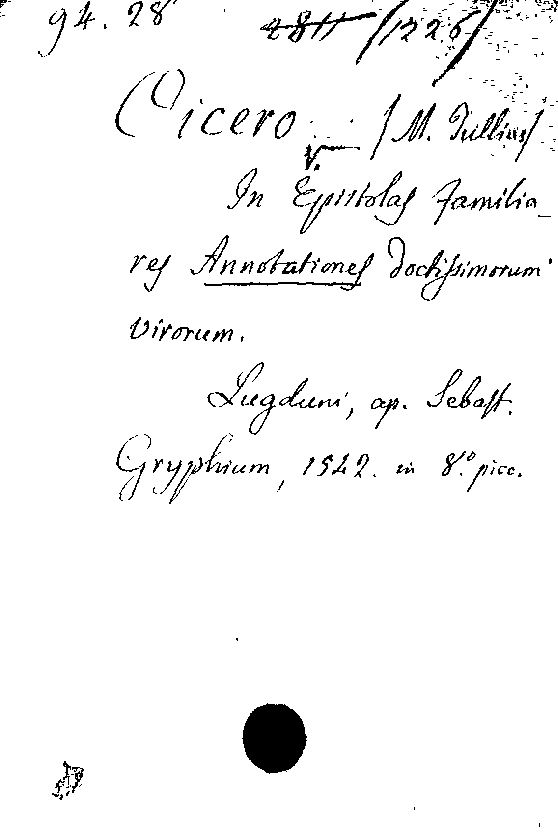 94. 28 2811 /1226/
Cicero /M. Tullius/
v.
In Epistolas Familia-
res Annotationes doctissimorum
virorum.
Lugduni, ap. Sebast.
Gryphium, 1542. in 8.º picc.